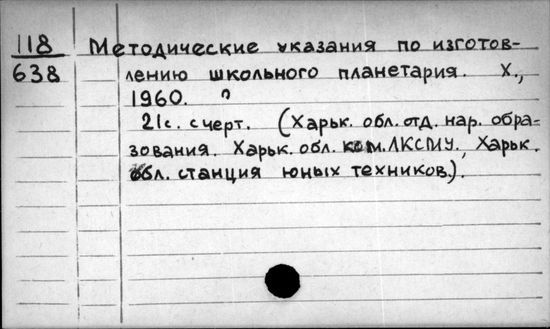 118 Методические указания по изготов-
638 лению школьного планетария. Х.,
1960. ?
21с. с черт. (Харьк. обл. отд. нар. обра-
зования. Харьк. обл. ком. ЛКСМУ., Харьк.
обл. станция юных техников.).